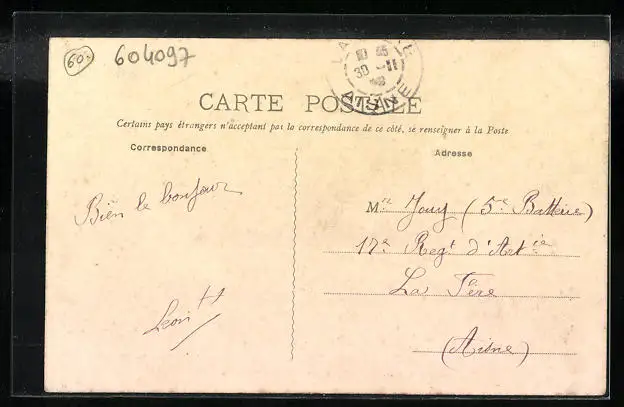 60
604097
10 45
30 -11
AISNE
CARTE POSTALE
Certains pays étrangers n'acceptant pas la correspondance de ce côté, se renseigner à la Poste
Correspondance
Adresse
Bien le bonjour
Leon
Mr Jouy (5e Batterie)
17e Regt d'Artie
La Fère
(Aisne)